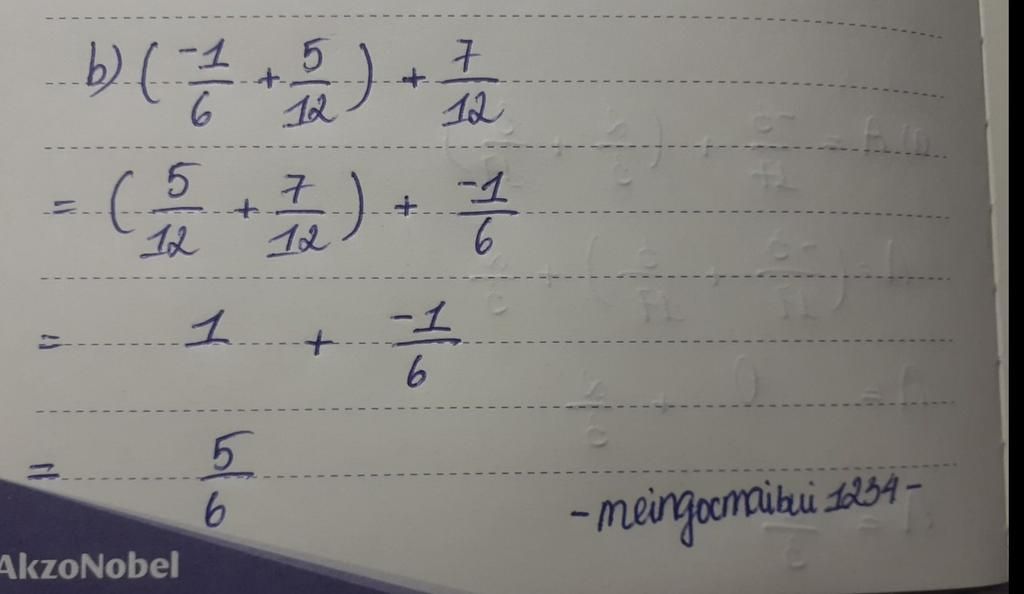 b) (-1/6 + 5/12) + 7/12
= (5/12 + 7/12) + -1/6
= 1 + -1/6
= 5/6
-meingocmaibui 1234-
AkzoNobel